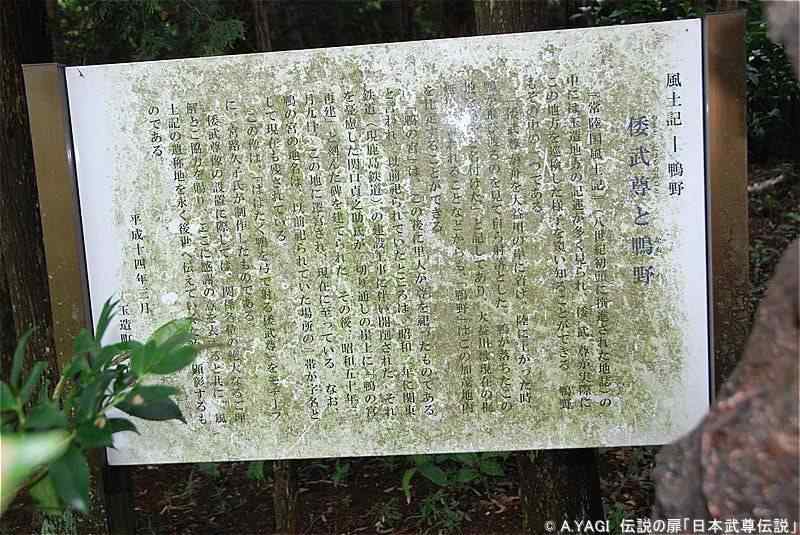 風土記ー鴨野
倭武尊と鴨野
『常陸国風土記』(八世紀初頭に撰進された地誌)の
中には玉造地方の記述が多く見られ、倭武尊が実際に
この地方を巡幸した様子を窺い知ることができる。鴨野
もその中の一つである。
倭武尊が舟を大益河の岸に着け、陸に上がった時
鴨が飛び渡るのを見て自ら射落とした。鴨が落ちたこの
地を鴨野と名付けた」と記してあり、大益河は現在の梶
無川といわれることなどから、鴨野とはこの加茂地内
を比定することができる。
「鴨の宮」は、この後に里人が尊を祀ったものである
といわれ、以前祀られていたところは、昭和二年に関東
鉄道(現鹿島鉄道)の建設工事に伴い開削された。それ
を憂慮した関口貞之助氏が、切り通しの崖上に「鴨の宮
再建」と刻んだ碑を建てられた。その後、昭和五十年三
月九日、この地に遷宮され、現在に至っている。なお
鴨の宮の地名は、以前祀られていた場所の一帯が字名と
して現在も残されている。
この像は、「はばたく鴨を弓で射る倭武尊」をモチーフ
に、宮路久子氏が制作したものである。
倭武尊像の設置に際しては、関係各位の絶大なるご理
解とご協力を賜り、ここに感謝の意を表すると共に、風
土記の遺称地を永く後世へ伝えていくため顕彰するも
のである。
平成十四年三月
玉造町
© A.YAGI 伝説の扉「日本武尊伝説」